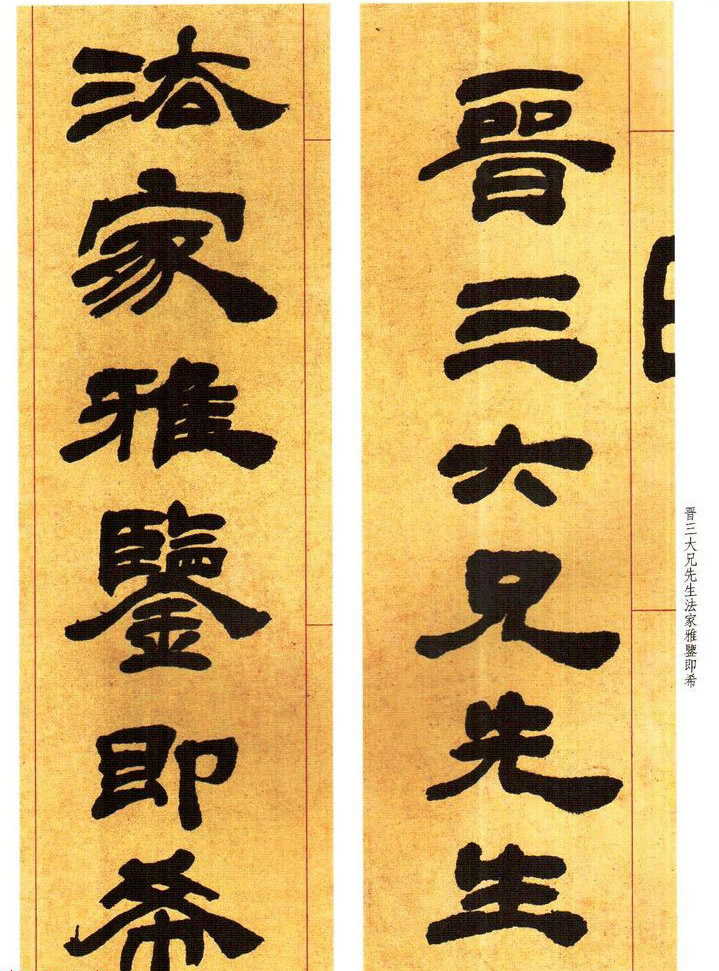 晋三大兄先生
法家雅鑒即希
晋三大兄先生法家雅鑒即希